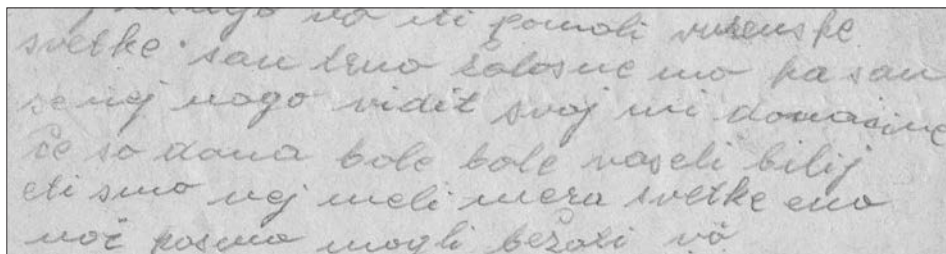 vö eti pomali vüzenske
svetke san trno žalosne mo ka san
se nej mogo vidit svoj mi domačimi
če so doma bole bole vaseli bilij
eti smo nej meli mera svetke eno
noč kosmo mogli bežati vö